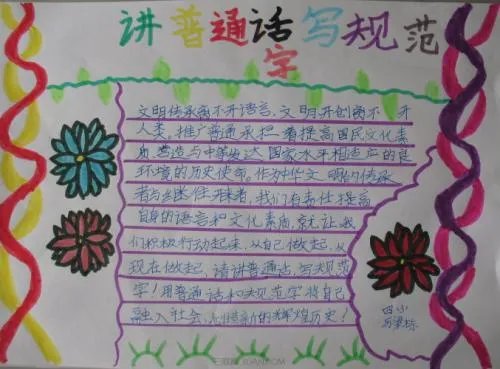 讲普通话写规范
字
文明传承离不开语言,文明开创离不开
人类,推广普通承担着提高国民文化素
质,营造与中等发达国家水平相适应的良
环境的历史使命。作为中华文明的传承
者与继往开来者,我们有责任提高
自身的语言和文化素质,就让我
们积极行动起来,从自己做起,从
现在做起,请讲普通话,写规范
字!用普通话和规范字将自己
融入社会,新的辉煌历史!
四小